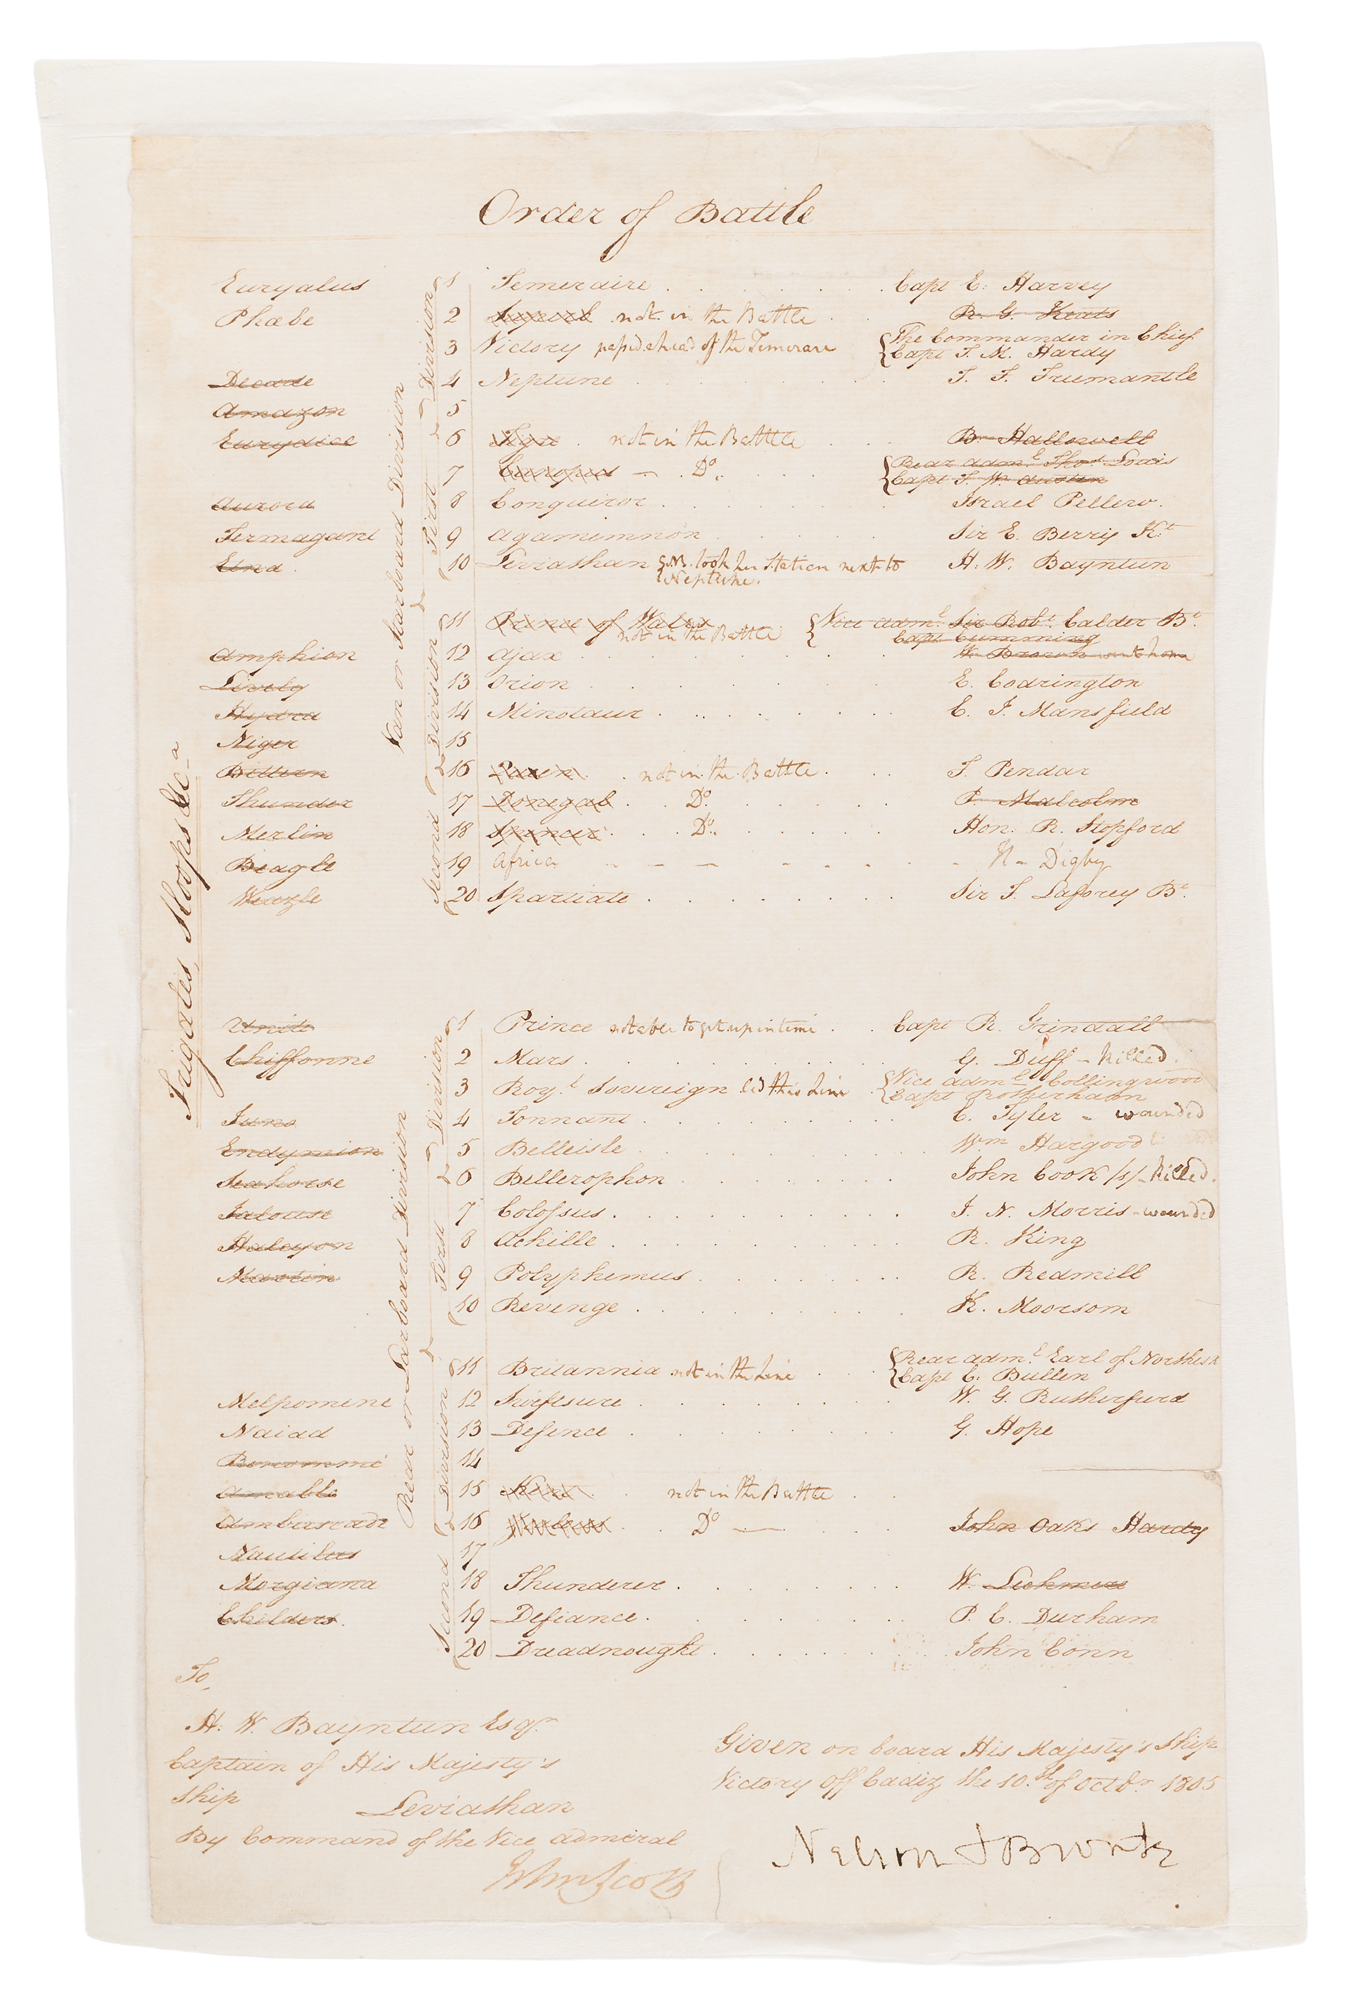 Order of Battle
Euryalus 1 Temeraire Capt E. Harvey
Phœbe 2 Superb not in the Battle R. G. Keats
3 Victory pass'd ahead of the Temerare The Commander in Chief
Capt T. M. Hardy
Decade 4 Neptune T. F. Fremantle
Amazon 5
Eurydice 6 Tigre not in the Battle Bn Hallowell
7 Canopus Do. Rear Adml. Thos Louis
Capt F. W. Austen
Aurora 8 Conqueror Israel Pellew.
Termagant 9 Agamemnon Sir E. Berry Kt
Etna 10 Leviathan NB. took her station next to H. W. Bayntun
Neptune.
11 Prince of Wales Vice Adml. Sir Robt. Calder Bt.
not in the Battle Capt Cumming
Amphion 12 Ajax Wm Brown went home
Lively 13 Orion E. Codrington
Hydra 14 Minotaur C. J. Mansfield
Niger 15
Bittern 16 not in the Battle T. Pendar
Thunder 17 Donegal Do. P. Malcolm
Merlin 18 Spencer Do. Hon. R. Stopford
Beagle 19 Africa H Digby
Weazle 20 Spartiate Sir F. Laforey Bt.
Van or Starboard Division
First Division
Second Division
Frigates, Sloops &c a
Unite 1 Prince not able to get up in time Capt R. Grindall
Chiffonne 2 Mars G. Duff - killed.
3 Royl Sovereign led this Line Vice Adml Collingwood
Capt Rotherham
Juno 4 Tonnant C. Tyler - wounded
Endymion 5 Belleisle Wm Hargood
Seahorse 6 Bellerophon John Cook /s/ - killed.
Jalouse 7 Colossus J. N. Morris - wounded
Halcyon 8 Achille R. King
Martin 9 Polyphemus R. Redmill
10 Revenge R. Moorsom
11 Britannia not in the Line Rear Adml. Earl of Northesk
Capt C. Bullen
Melpomene 12 Swiftsure W. G. Rutherfurd
Naiad 13 Defence G. Hope
Renommé 14
Amable 15 not in the Battle
Ambuscade 16 Do John Oaks Hardy
Nautilus 17
Morgiana 18 Thunderer W. Lechmere
Childers 19 Defiance P. C. Durham
20 Dreadnought John Conn
Rear or Larboard Division
First Division
Second Division
To,
H. W. Bayntun Esqr.
Captain of His Majesty's
Ship Leviathan
By Command of the Vice Admiral
John Scott
Given on board His Majesty's Ship
Victory off Cadiz, the 10.th of Octbr. 1805
Nelson & Bronte